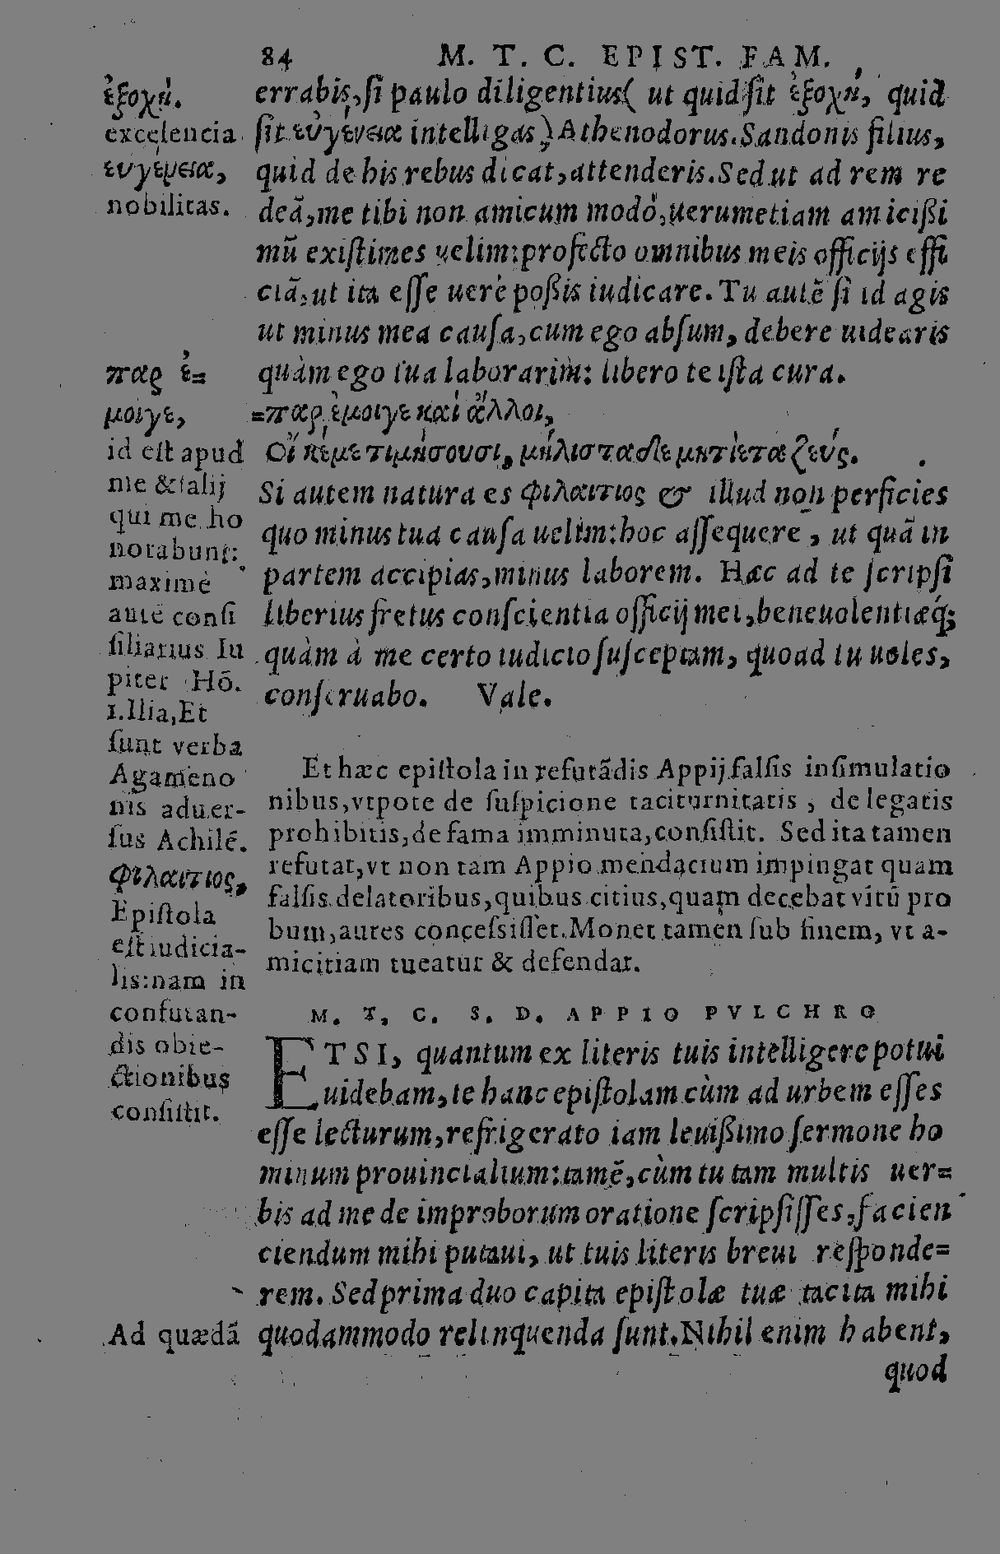 84 M. T. C. EPIST. FAM.
errabis, ſi paulo diligentius ( ut quid ſit ἐξοχή, quid
ſit εὐγένεια intelligas ) Athenodorus. Sandonis filius,
quid de his rebus dicat, attenderis. Sed ut ad rem re
deā, me tibi non amicum modò, uerumetiam amiciſsi
mū exiſtimes uelim: profecto omnibus meis officijs effi
ciā, ut ita eſſe uerè poſsis iudicare. Tu autē ſi id agis
ut minus mea cauſa, cum ego abſum, debere uidearis
quàm ego tua laborarim: libero te iſta cura.
=παρ ἐμοιγε καὶ ἄλλοι,
Οἵ κέ με τιμήσουσι, μήλιστα δὲ μητίετα ζεύς.
Si autem natura es φιλαιτιος & illud non perficies
quo minus tua cauſa uelim: hoc aſſequere, ut quā in
partem accipias, minus laborem. Hæc ad te ſcripſi
liberius fretus conſcientia officij mei, beneuolentiæq́;
quàm à me certo iudicio ſuſceptam, quoad tu uoles,
conſeruabo. Vale.
ἐξοχή.
excelencia
ευγένεια,
nobilitas.
παρ ἐ=
μοιγε,
id eſt apud
me & alij
qui me ho
norabunt:
maximè
autē conſi
ſiliarius Iu
piter Hō.
1. Ilia, Et
ſunt verba
Agameno
nis aduer-
ſus Achilē.
Φιλαιτιος,
Epiſtola
eſt iudicia-
lis: nam in
confutan-
dis obie-
ctionibus
conſiſtit.
Et hæc epiſtola in refutādis Appij falſis inſimulatio
nibus, vtpote de ſuſpicione taciturnitatis, de legatis
prohibitis, de fama imminuta, conſiſtit. Sed ita tamen
refutat, vt non tam Appio mendacium impingat quam
falſis delatoribus, quibus citius, quam decebat virū pro
bum, aures conceſsiſſet. Monet tamen ſub finem, vt a-
micitiam tueatur & defendat.
M. T. C. S. D. APPIO PVLCHRO
ETSI, quantum ex literis tuis intelligere potui
uidebam, te hanc epiſtolam cùm ad urbem eſſes
eſſe lecturum, refrigerato iam leuiſsimo ſermone ho
minum prouincialium: tamē, cùm tu tam multis uer=
bis ad me de improborum oratione ſcripſiſſes, facien
ciendum mihi putaui, ut tuis literis breui reſponde=
rem. Sed prima duo capita epiſtolæ tuæ tacita mihi
Ad quædā quodammodo relinquenda ſunt. Nihil enim habent,
quod